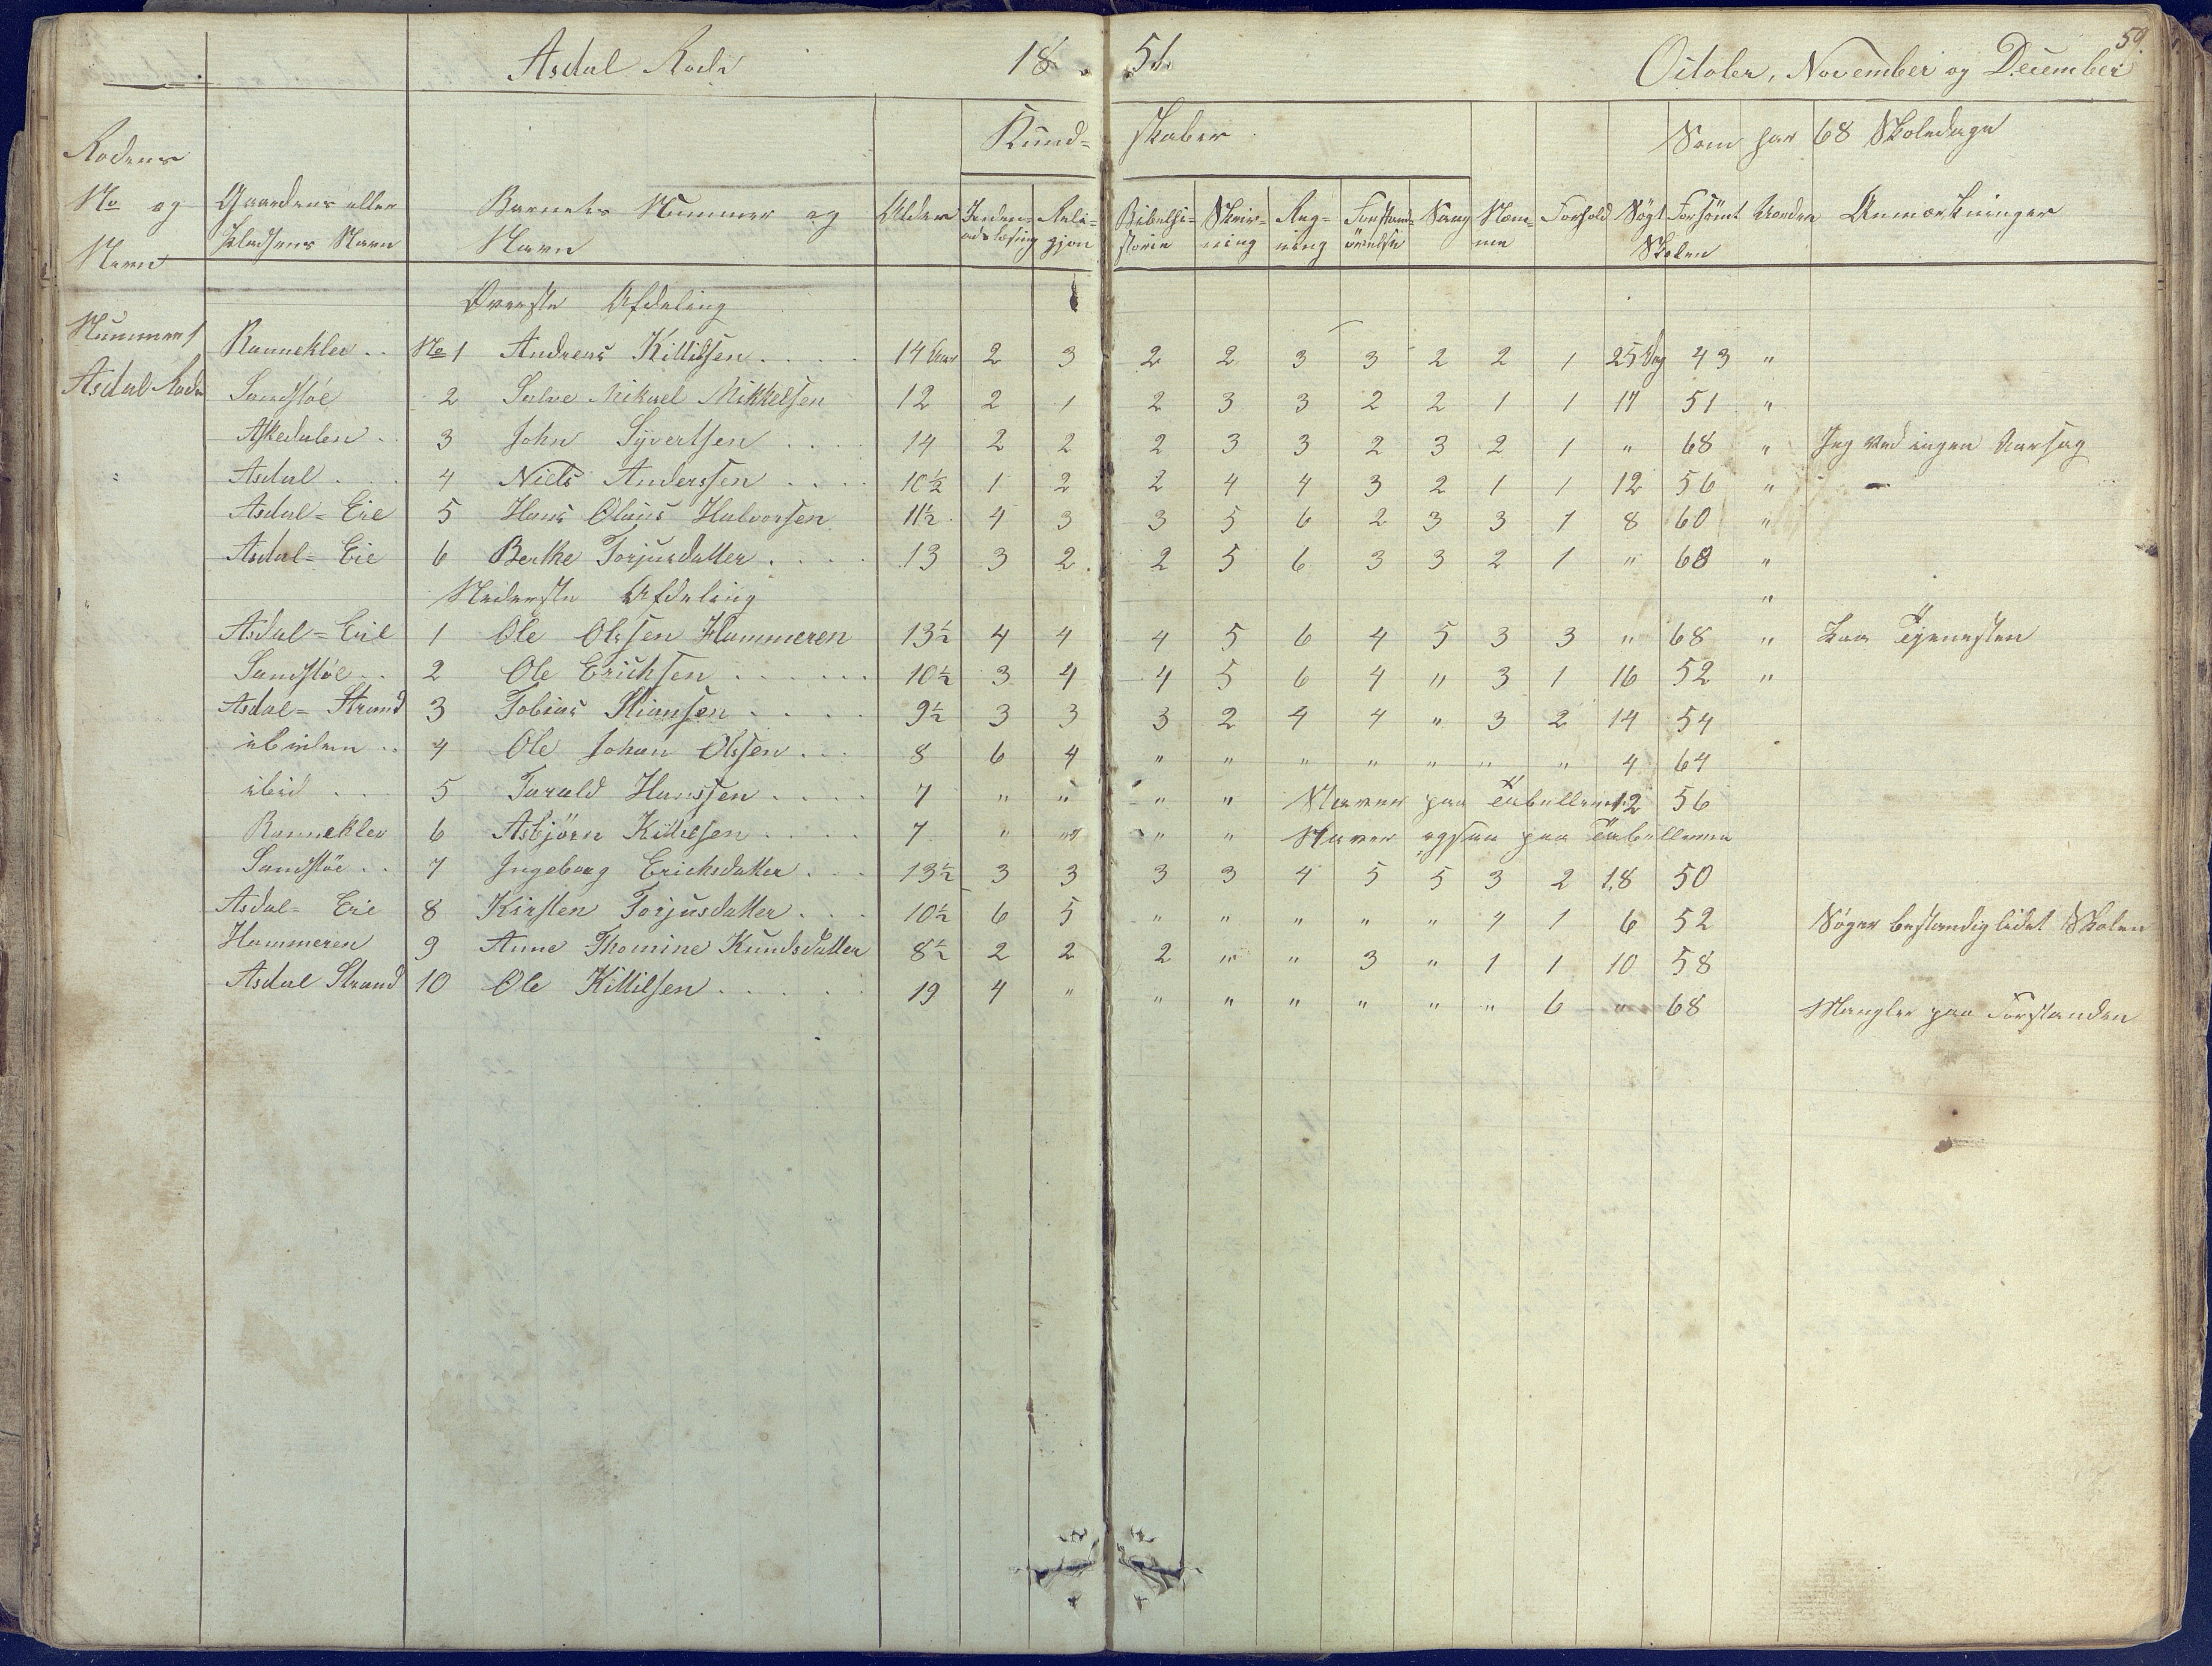 59.
Asdal Rode 18 51. October, November og December
Kund= skaber Som har 68 Skoledage
Rodens No og Navn
Gaardens eller Pladsens Navn
Barnets Nummer og Navn
Alder Inden= adslæsning Reli= gjon Bibelhi= storie Skriv= ning Reg= ning Forstand= øvelse Sang Nem= me Forhold Søgt Forsømt Skolen Anmærkninger
Øverste Afdeling
Nummer 1 Ranneklev .. No 1 Andreas Kittilsen .... 14 Aar 2 3 2 2 3 3 2 2 1 25 Dag 43 "
Asdal Rode Sandstøe 2 Salve Mikael Mikkelsen 12 2 1 2 3 3 2 2 1 1 17 51 "
Askedalen . 3 John Syvertsen .... 14 2 2 2 3 3 2 3 2 1 " 68 " Jeg ved ingen Aarsag
Asdal . . 4 Niels Anderssen .... 10½ 1 2 2 4 4 3 2 1 1 12 56 " -
Asdal= Eie 5 Hans Olaus Halvorsen 11½ 4 3 3 5 6 2 3 3 1 8 60 "
Asdal= Eie 6 Berthe Torjusdatter .... 13 3 2 2 5 6 3 3 2 1 " 68 "
Nederste Afdeling "
Asdal= Eie 1 Ole Olssen Hammeren 13½ 4 4 4 5 6 4 5 3 3 " 68 " Paa Tjenesten
Sandstøe .. 2 Ole Erichsen ...... 10½ 3 4 4 5 6 4 " 3 1 16 52 "
Asdal= Strand 3 Tobias Stiansen .... 9½ 3 3 3 2 4 4 " 3 2 14 54
ibidem .. 4 Ole Johan Olssen ... 8 6 4 " " " " " " " 4 64
ibid ... 5 Tarald Hanssen .... 7 " " " " Staver paa Tabellerne 12 56
Ranneklev 6 Asbjörn Kittilsen .... 7 " " " " Staver ogsaa paa Tabellerne
Sandstøe .. 7 Ingeborg Erichsdatter ... 13½ 3 3 3 3 4 5 5 3 2 18 50
Asdal= Eie 8 Kirsten Torjusdatter ... 10½ 6 5 " " " " " 4 1 6 52 Søger bestandig lidet Skolen
Hammeren 9 Anne Thomine Knudsdatter 8½ 2 2 2 " " 3 " 1 1 10 58
Asdal Strand 10 Ole Kittilsen ..... 19 4 " " " " " " " 6 " 68 Mangler paa Forstanden